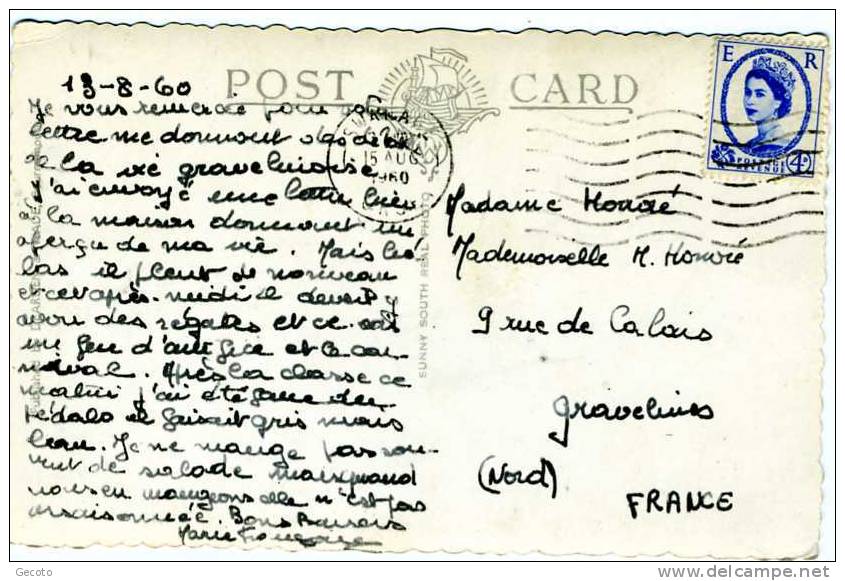 POST CARD
13-8-60
Je vous remercie pour votre
lettre me donnant des détails
de la vie gravelinoise.
J'ai envoyé une lettre hier
à la maison donnant un
aperçu de ma vie. Mais hé-
las il pleut de nouveau
et cet après-midi il devait y
avoir des régates et ce soir
un feu d'artifice et le car-
naval. Après la classe ce
matin j'ai été faire du
pédalo il faisait gris mais
beau. Je ne mange pas sou-
vent de salade mais quand
nous en mangeons elle n'est pas
assaisonnée. Bons Baisers
Marie
SUNNY SOUTH REAL PHOTO
15 AUG
1960
E R
POSTAGE
REVENUE
4D
Madame Honoré
Mademoiselle M. Honoré
9 rue de Calais
Gravelines
(Nord)
FRANCE
Gecoto
http://www.delcampe.net